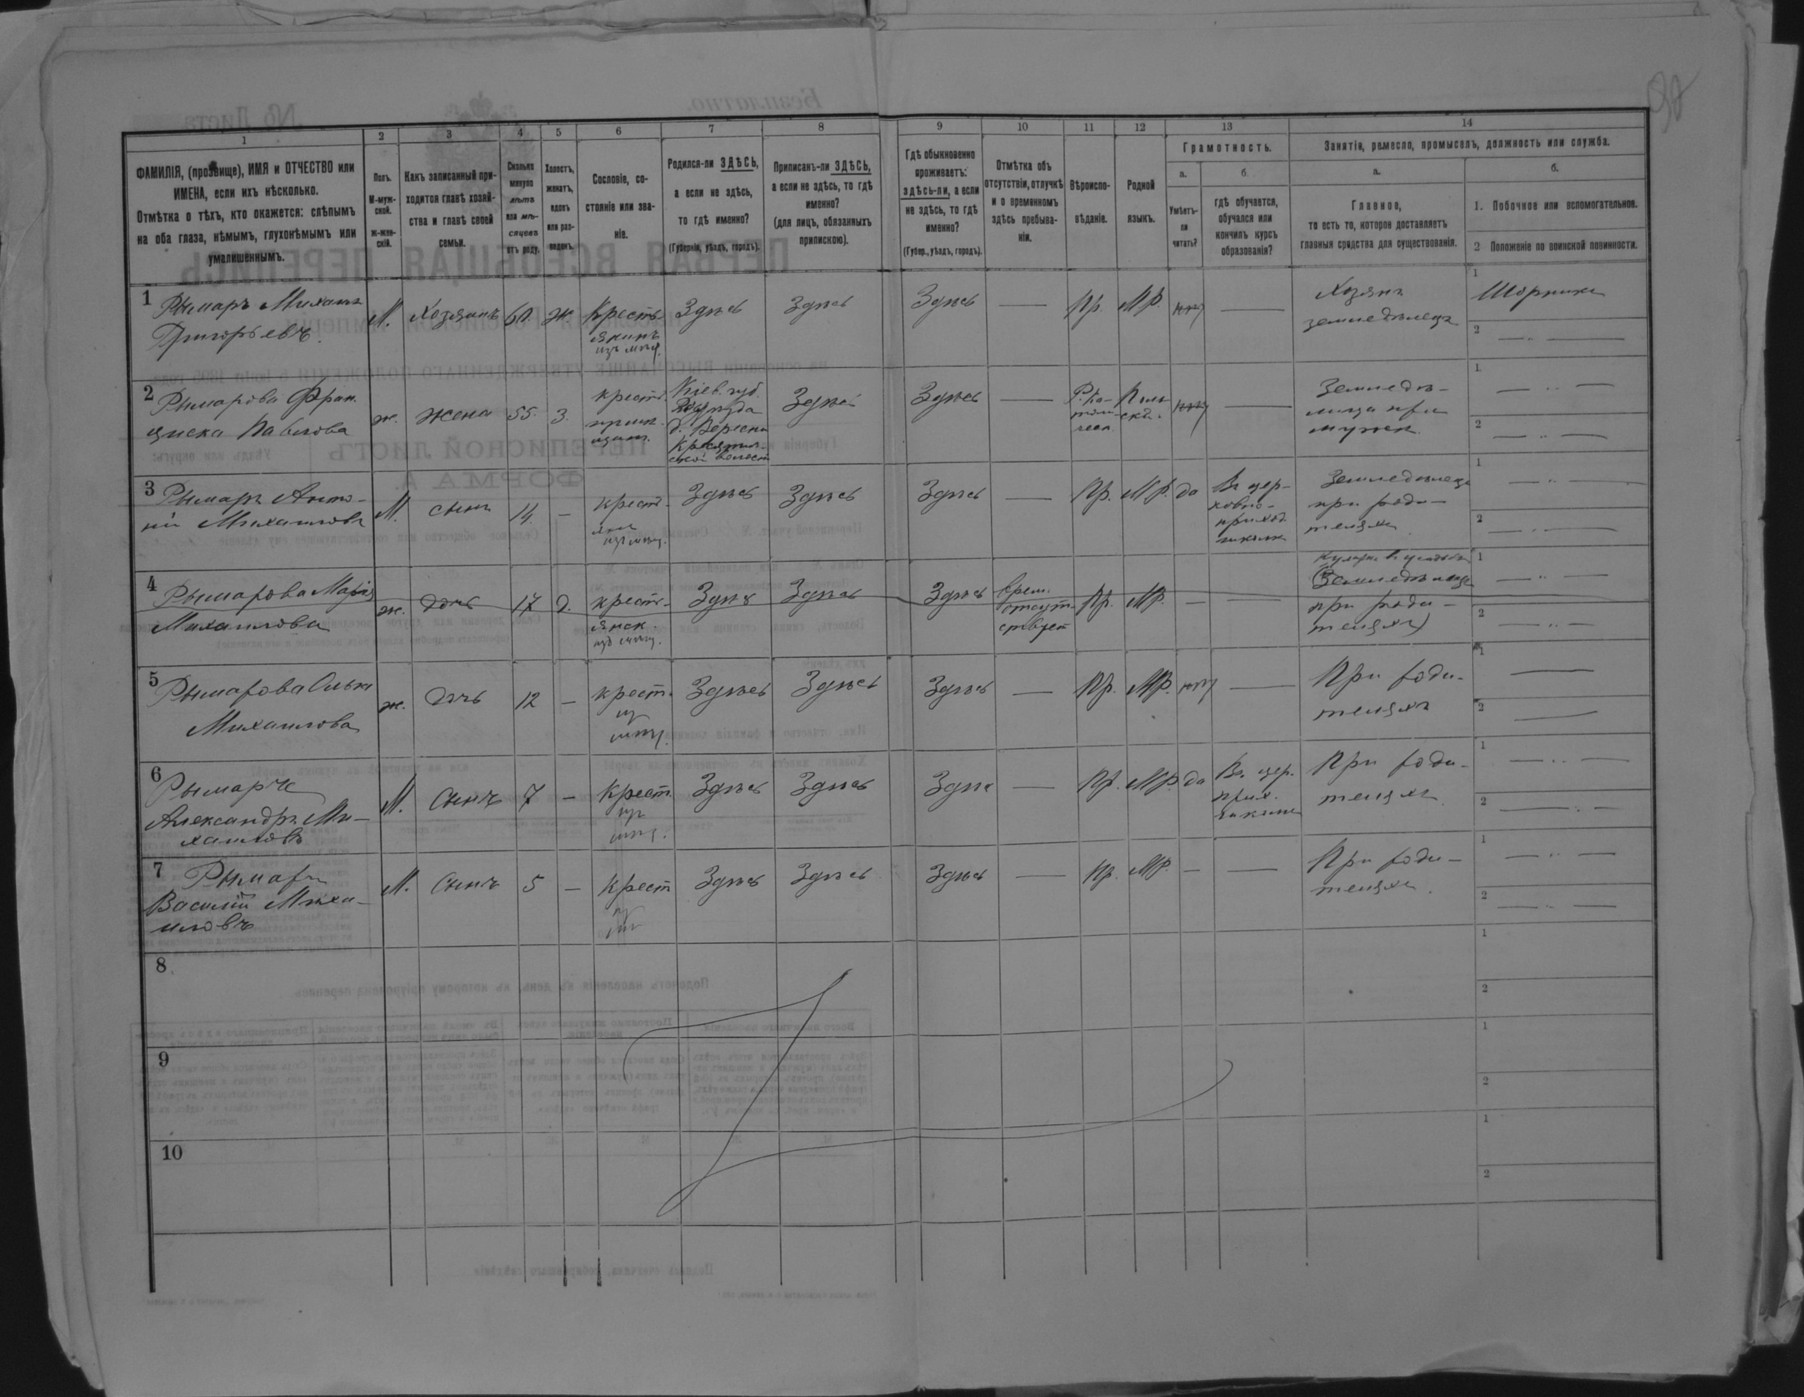 1 2 3 4 5 6 7 8 9 10 11 12 13 14
ФАМИЛІЯ, (прозвище), ИМЯ и ОТЧЕСТВО или
ИМЕНА, если ихъ нѣсколько.
Отмѣтка о тѣхъ, кто окажется: слѣпымъ
на оба глаза, нѣмымъ, глухонѣмымъ или
умалишеннымъ.
Полъ.
М-муж-
ской.
ж-жен-
скій.
Какъ записанный при-
ходится главѣ хозяй-
ства и главѣ своей
семьи.
Сколько
минуло
лѣтъ
или мѣ-
сяцевъ
отъ роду.
Холостъ,
женатъ,
вдовъ
или раз-
веденъ.
Сословіе, со-
стояніе или зва-
ніе.
Родился-ли ЗДѢСЬ,
а если не здѣсь,
то гдѣ именно?
(Губернія, уѣздъ, городъ).
Приписанъ-ли ЗДѢСЬ,
а если не здѣсь, то гдѣ
именно?
(для лицъ, обязанныхъ
припискою).
Гдѣ обыкновенно
проживаетъ:
здѣсь-ли, а если
не здѣсь, то гдѣ
именно?
(Губер., уѣздъ, городъ).
Отмѣтка объ
отсутствіи, отлучкѣ
и о временномъ
здѣсь пребыва-
ніи.
Вѣроиспо-
вѣданіе.
Родной
языкъ.
Грамотность.
а.
Умѣетъ-
ли
читать?
б.
гдѣ обучается,
обучался или
кончилъ курсъ
образованія?
Занятіе, ремесло, промыселъ, должность или служба.
а.
Главное,
то есть то, которое доставляетъ
главныя средства для существованія.
б.
1. Побочное или вспомогательное.
2 Положеніе по воинской повинности.
1 Рымаръ Михаилъ
Григорьевъ.
М. Хозяинъ 60 Ж Кресть-
янинъ
Здѣсь Здѣсь Здѣсь — Пр. МР. нѣт —
Хозяинъ
земледѣлецъ
1 Шорникъ
2
2 Рымарова Фран-
циска Павлова
ж. жена 55. З. крест.
Кіев. губ.
Здѣсь Здѣсь — Р. Ка-
толи-
ческ.
Поль-
скъ.
нѣт —
Земледѣ-
лица при
мужѣ
1
2
3 Рымаръ Анто-
ній Михаиловъ
М. сынъ 14. — крест-
Здѣсь Здѣсь Здѣсь — Пр. МР. да Въ цер-
ковно-
приход
школѣ
Земледѣлецъ
при роди-
теляхъ
1
2
4 Рымарова Марія
Михаилова
ж. дочь 17 д. крест-
янск.
Здѣсь Здѣсь Здѣсь врем.
отсут-
ствует
Пр. МР. — —
Земледѣлица
при роди-
теляхъ)
1
2
5 Рымарова Ольга
Михаилова
ж. дочь 12 — крест.
Здѣсь Здѣсь Здѣсь — Пр. МР. нѣт —
При роди-
теляхъ
1
2
6 Рымаръ
Александръ Ми-
хаиловъ
М. сынъ 7 — Крест.
Здѣсь Здѣсь Здѣсь — Пр. МР. да Въ цер.
прих.
школѣ
При роди-
теляхъ
1
2
7 Рымаръ
Василій Миха-
иловъ
М. сынъ 5 — Крест
Здѣсь Здѣсь Здѣсь — Пр. МР. — —
При роди-
теляхъ.
1
2
8
1
2
9
1
2
10
1
2